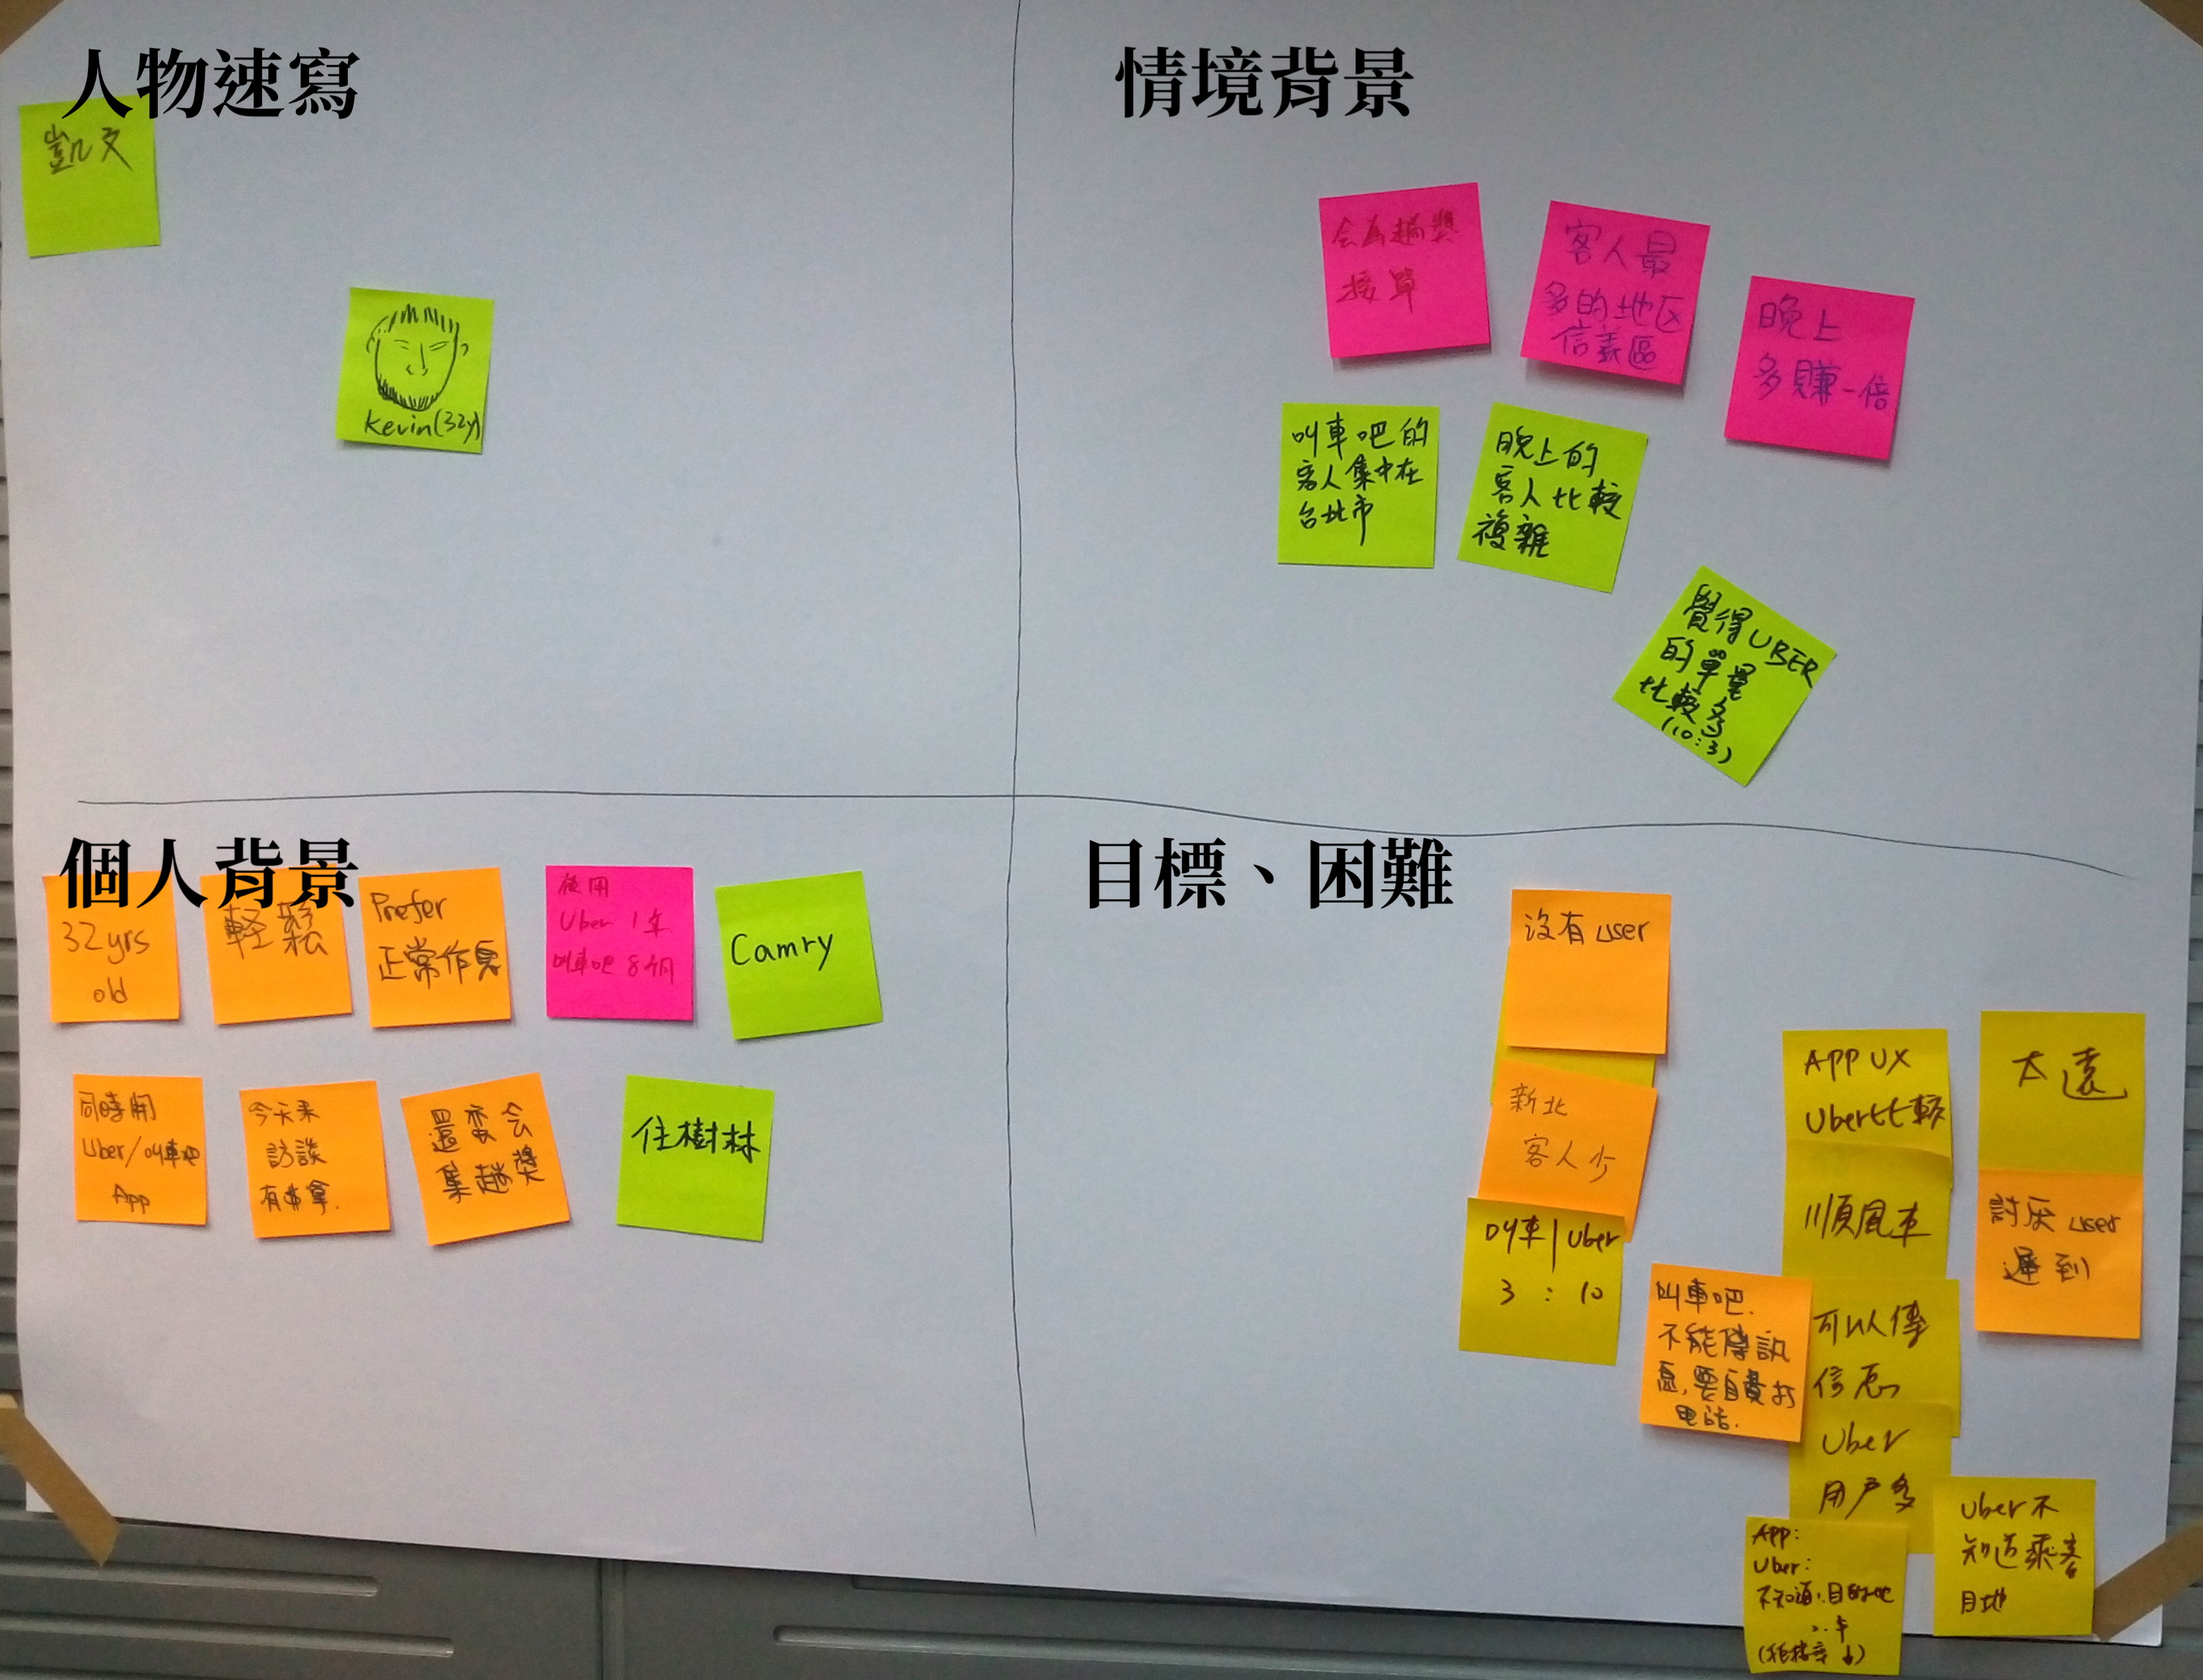 人物速寫
凱文
Kevin(32y)
情境背景
会為趟獎
接單
客人最
多的地区
信義區
晚上
多賺一倍
叫車吧的
客人集中在
台北市
晚上的
客人比較
複雜
覺得UBER
的單量
比較多
(10:3)
個人背景
32yrs
old
輕鬆
Prefer
正常作息
使用
Uber 1年
叫車吧 8个月
Camry
同時開
Uber/叫車吧
App
今天來
訪談
有帶拿.
還蠻会
集趟獎
住樹林
目標、困難
沒有user
新北
客人少
叫車|Uber
3:10
叫車吧.
不能傳訊
息,要自費打
電話.
APP UX
Uber比較
順風車
可以傳
信息
Uber
用户多
App:
Uber:
不知道目的地
太遠
討厭user
遲到
Uber不
知道乘客
目地